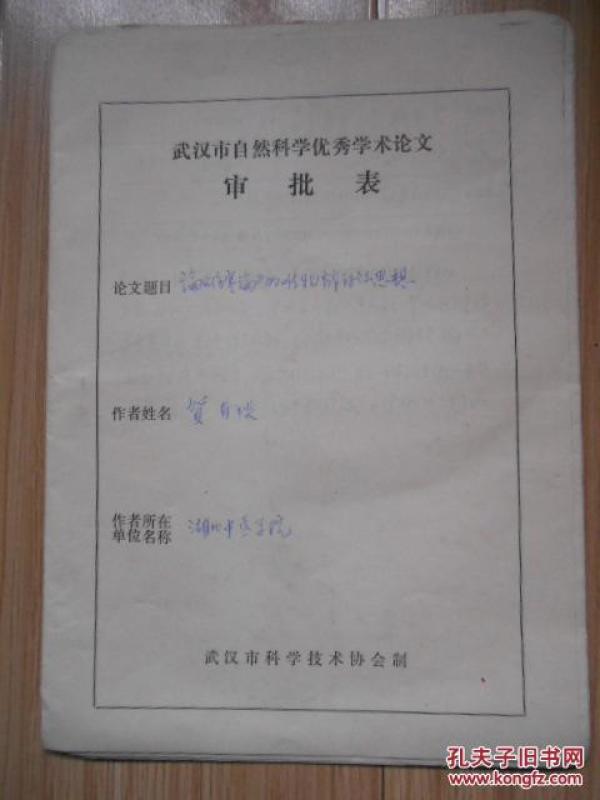 武汉市自然科学优秀学术论文
审批表
论文题目 论伤寒论的 思想
作者姓名 贺有琰
作者所在
单位名称 湖北中医学院
武汉市科学技术协会制
孔夫子旧书网
www.kongfz.com